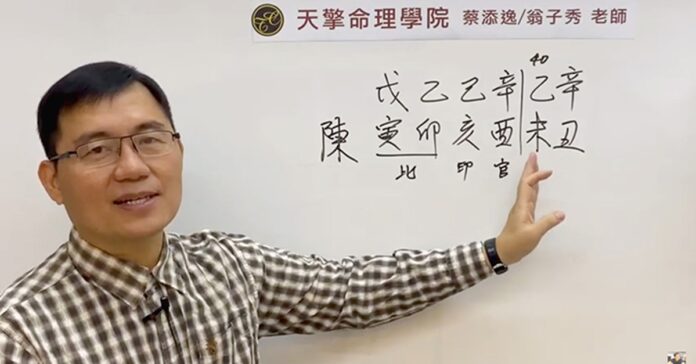 天擎命理學院 蔡添逸/翁子秀 老師
40
戊乙己辛乙辛
陳寅卯亥酉未丑
比 印 官